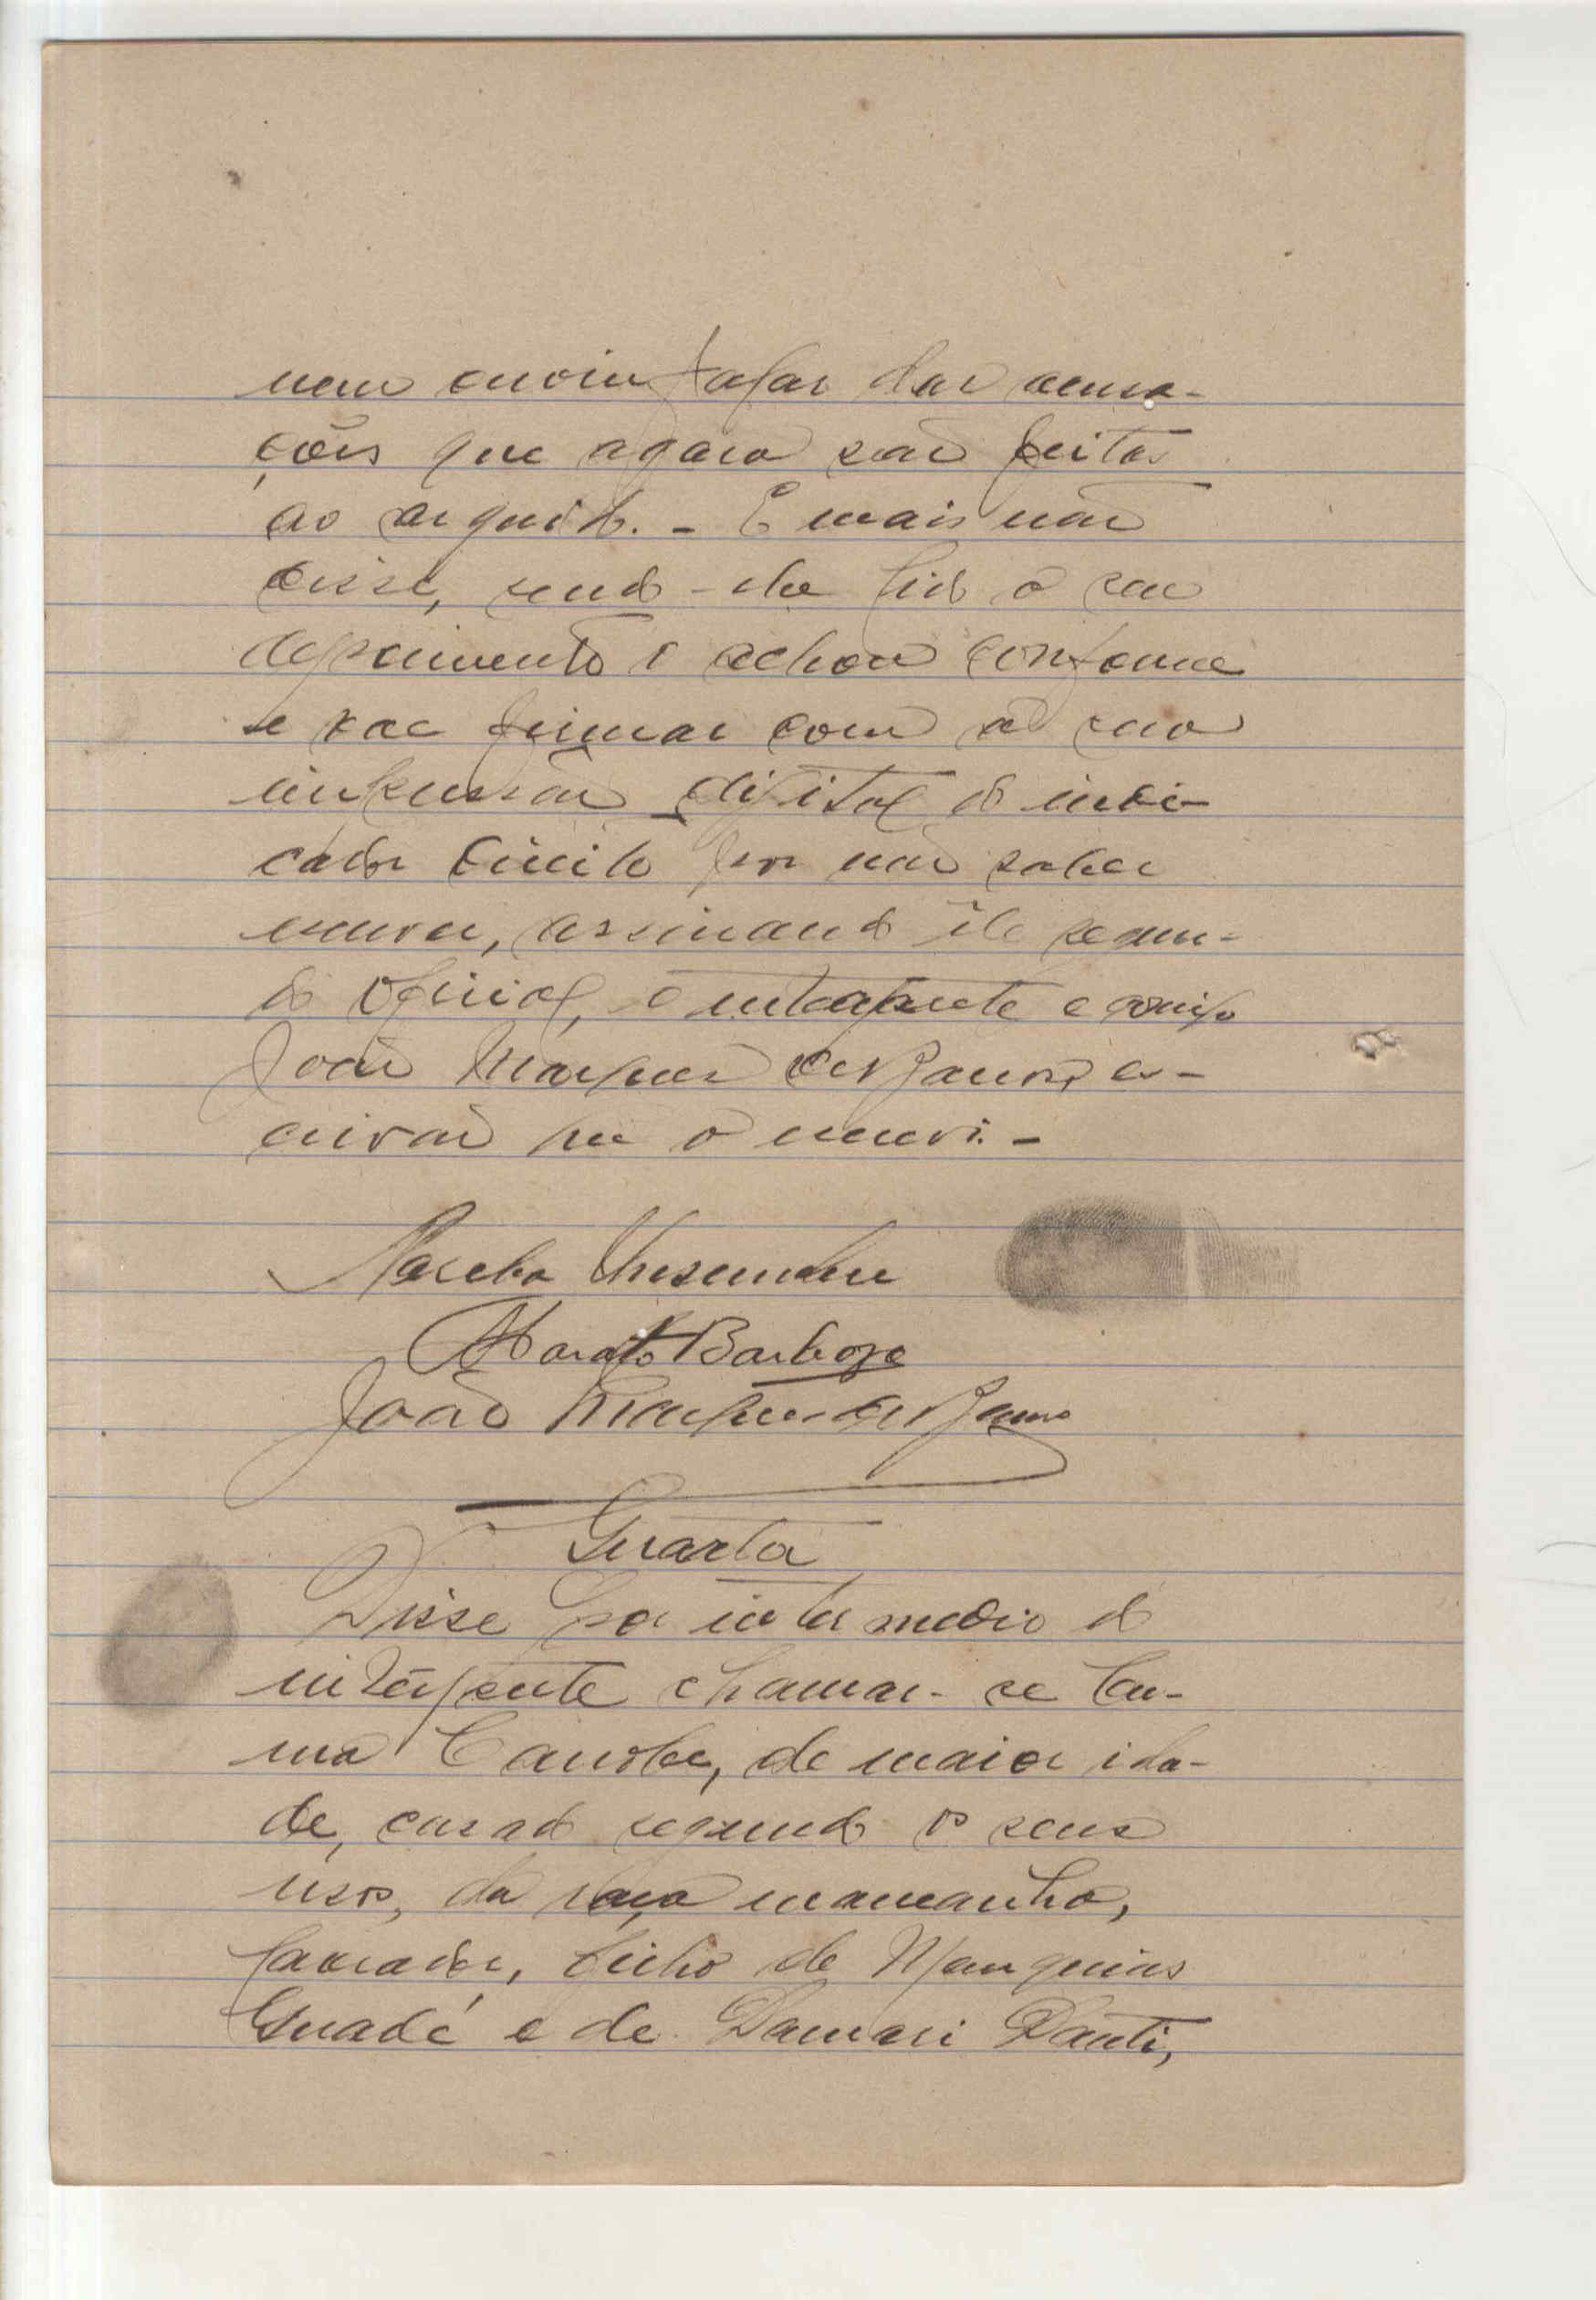 nem ouviu falar das acusa-
ções que agora são feitas
ao arguido. - E mais não
disse, sendo-lhe lido o seu
depoimento o achou conforme
e vae firmar com a sua
impressão digital do indi-
cador direito por não saber
escrever, assinando êle segun-
do oficial, o interprete e comigo
João Marques de Barros, es-
crivão que o escrevi. -
Barbosa
João Marques de Barros
Quarta
Disse por intermedio do
intérprete chamar-se
de maior ida-
de, casado segundo os seus
usos, da raça mancanha,
lavrador, filho de
e de